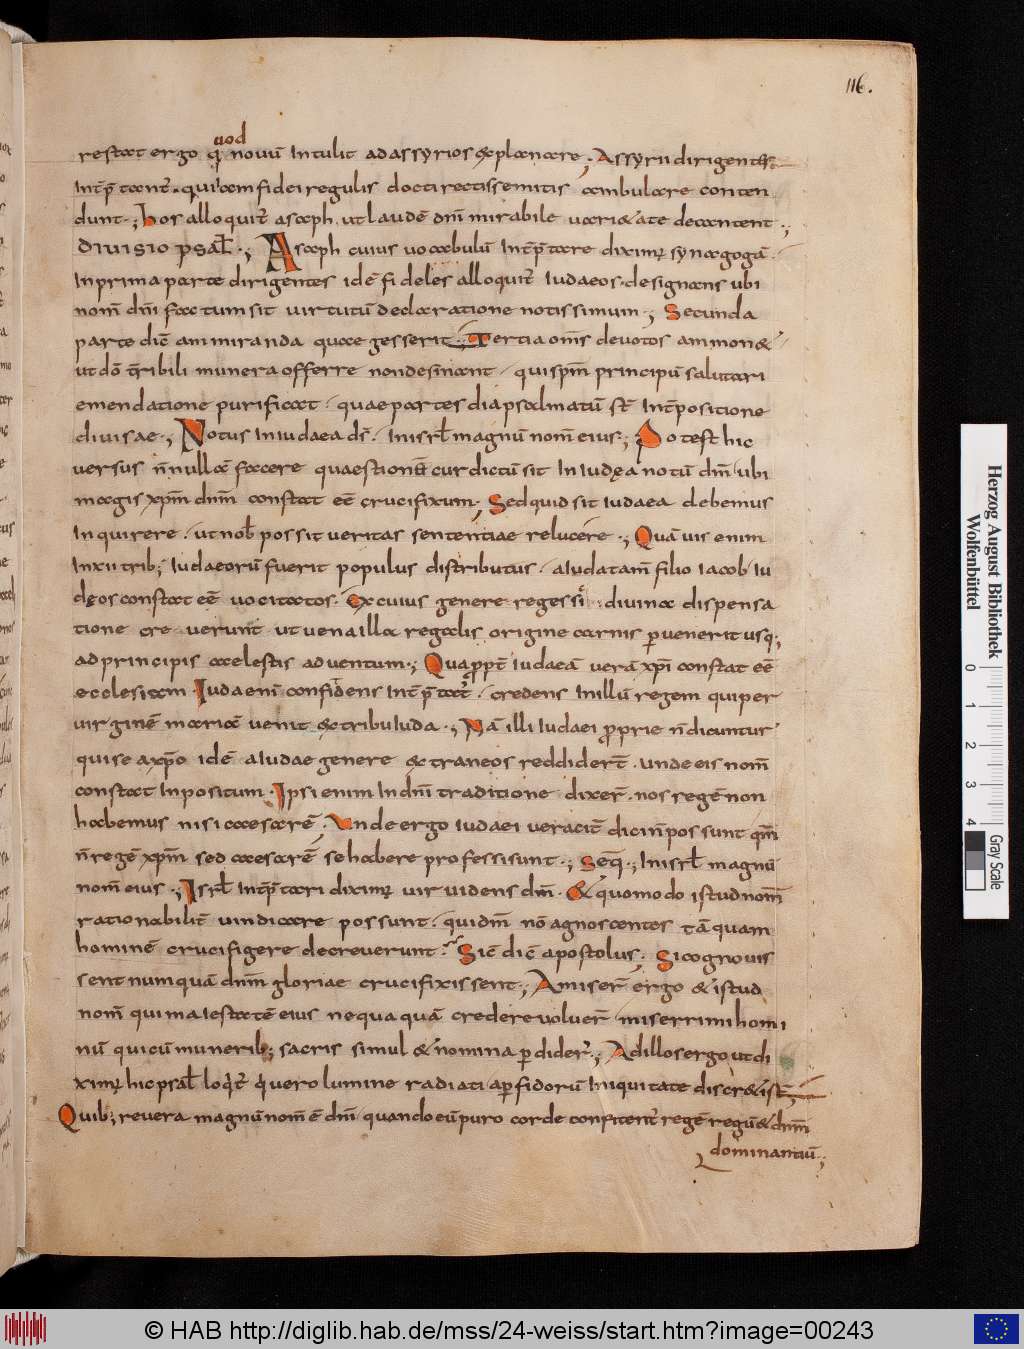 116.
uod
restat ergo q novū intulit ad assyrios explanare; Assyrii dirigentes
intp̄tant̄ qui cum fidei regulis docti rectis semitis ambulare conten
dunt; hos alloquit̄ asaph ut laudē dnī mirabile variaetate decantent;
divisio psal̄; Asaph cuius vocabulū intp̄tare diximꝰ synagogā.
In prima parte dirigentes idē fideles alloquit̄ iudaeos. designans ubi
nom̄ dnī factum sit virtutū declaratione notissimum; Secunda
parte dic̄ ammiranda quae gesserit; Tertia om̄s devotos ammonet
ut dō t̄ribili munera offerre non desinant. qui spm̄ principū salutari
emendatione purificat. quae partes diapsalmatū st̄ intp̄positione
divisae; Notus in iudaea ds̄. in isrl̄ magnū nom̄ eius; Potest hic
versus n̄ nullā facere quaestionē cur dictū sit in iudęa notū dm̄ ubi
magis xp̄m dnm̄ constat eē crucifixum. Sed quid sit iudaea debemus
inquirere. ut nob̄ possit veritas sententiae relucere; Quāvis enim
in xii trib; iudaeorū fuerit populus distributus. a iuda tam̄ filio iacob iu
dęos constat eē vocitatos. Ex cuius genere reges si divina dispensa
tione creverunt ut vena illa regalis origine carnis pvenerit usq;
ad principis caelestis adventum; Quapropt̄ iudaeā verā xp̄i constat eē
ecclesiam. Iuda enī confidens intp̄tat̄. credens in illū regem qui per
virginē mariā venit ex tribu iuda; Nā illi iudaei proprie n̄ dicuntur
qui se a xp̄o idē a iudae genere extraneos reddidert̄. unde eis nom̄
constat inpositum. Ipsi enim in dnī traditione dixer̄. nos regē non
habemus nisi caesarē. Unde ergo iudaei veracit̄ dici n̄ possunt qm̄
n̄ regē xp̄m sed caesarē se habere professi sunt; Seq̄; in isrl̄ magnū
nom̄ eius; Isrl̄ intp̄tari diximꝰ vir videns dm̄. Et quomodo istud nom̄
rationabilit̄ vindicare possunt. qui dm̄ nō agnoscentes tāquam
hominē crucifigere decreverunt. Sic̄ dic̄ apostolus. Si cognovis
sent numquā dnm̄ gloriae crucifixissent; Amiser̄ ergo et istud
nom̄ qui maiestatē eius nequaquā credere voluer̄ miserrimi homi
nū qui cū munerib; sacris simul et nomina pdider̄; Ad illos ergo ut di
ximꝰ hic psal̄ loqt̄ q vero lumine radiati a pfidorū iniquitate discret ist̄;
Quib; revera magnū nom̄ ē dnī quando eū puro corde confitent̄ regē regū et dnm̄
dominantiū;
Herzog August Bibliothek
Wolfenbüttel
0 1 2 3 4
Gray Scale
© HAB http://diglib.hab.de/mss/24-weiss/start.htm?image=00243